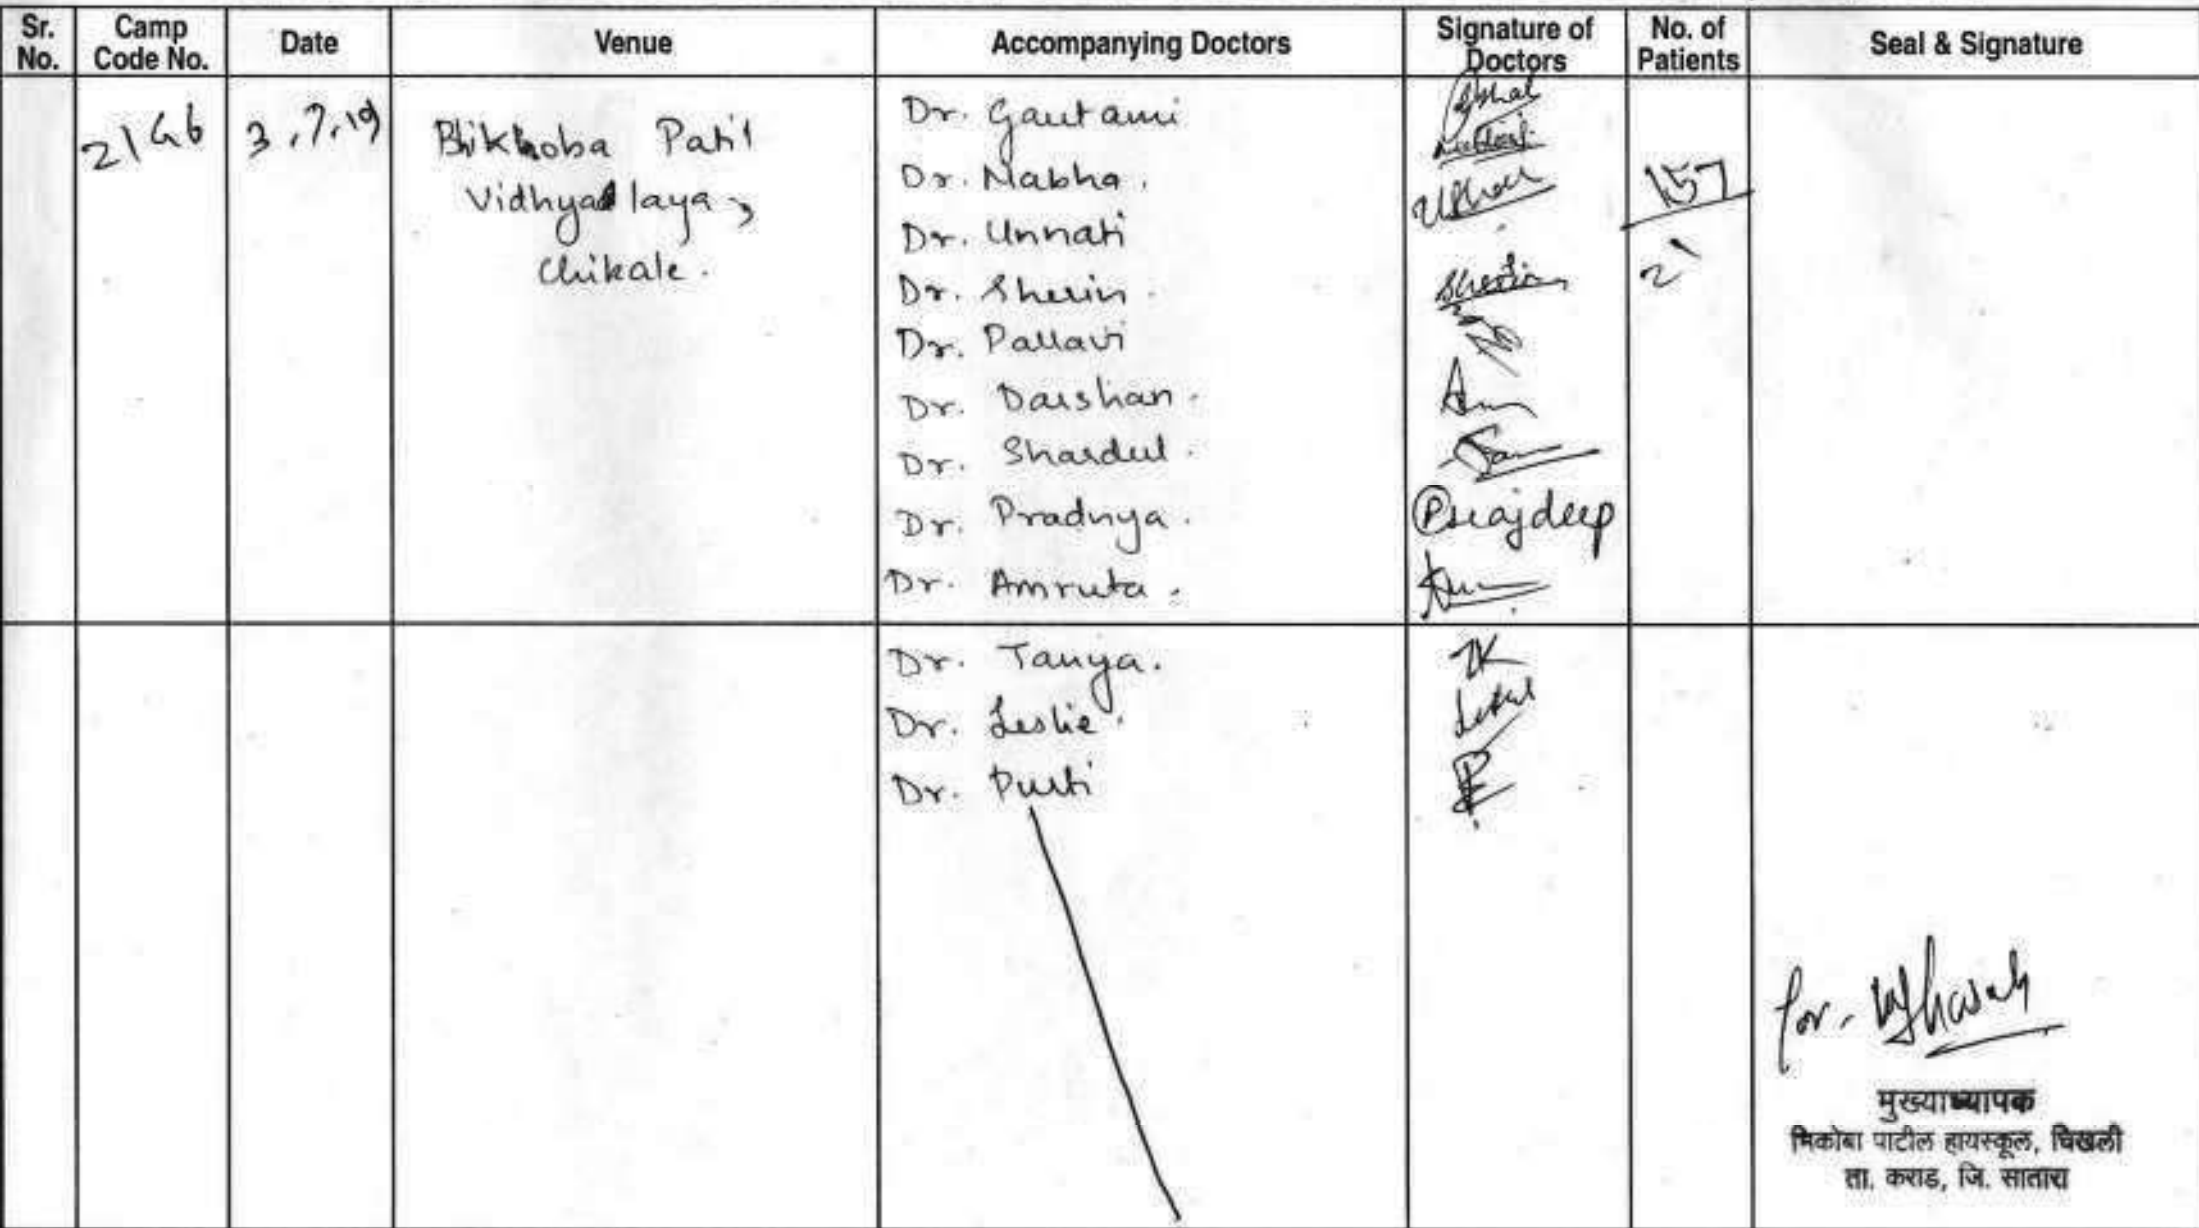 Sr. No. Camp Code No. Date Venue Accompanying Doctors Signature of Doctors No. of Patients Seal & Signature
2146 3.7.19 Bhikhoba Patil
Vidhyalaya,
Chikale.
Dr. Gautami
Dr. Nabha.
Dr. Unnati
Dr. Sherin.
Dr. Pallavi
Dr. Darshan.
Dr. Shardul.
Dr. Pradnya.
Dr. Amruta.
Prajdeep
157
21
Dr. Tanya.
Dr. Leslie.
Dr. Purti
TK
for.
मुख्याध्यापक
भिकोबा पाटील हायस्कूल, चिखली
ता. कराड, जि. सातारा